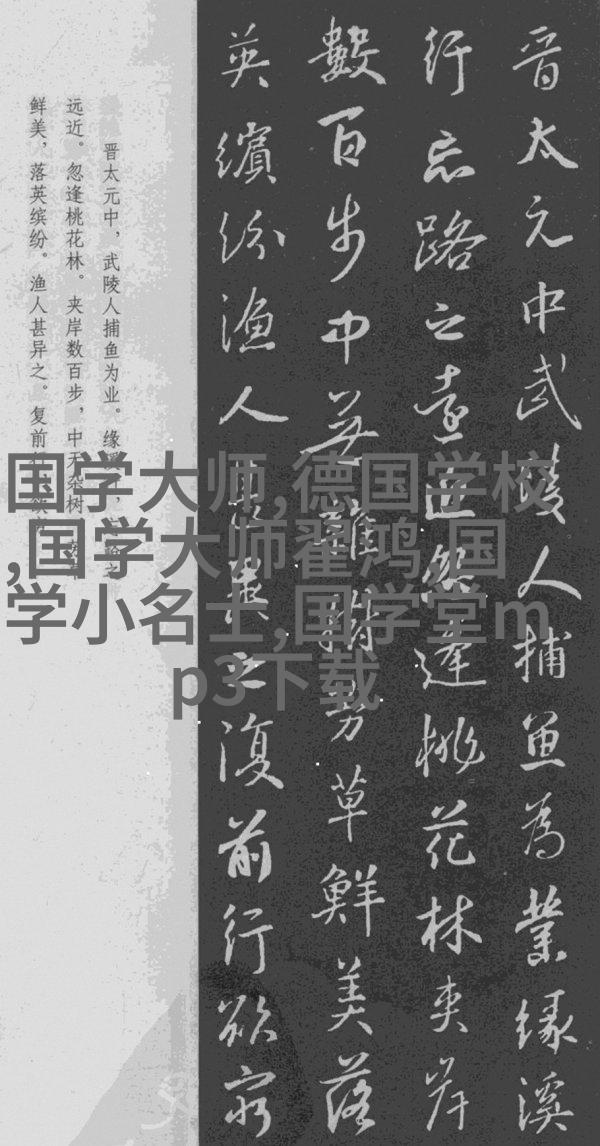 晋太元中武陵人捕魚為業緣溪
行忘路之遠近然逢桃花林夾岸
數百步中無雜樹芳草鮮美落
英繽紛漁人甚異之復前行欲窮
晋太元中，武陵人捕鱼为业。缘
远近。忽逢桃花林。夹岸数百步，中无杂树
鲜美，落英缤纷。渔人甚异之。复前
国学大师,德国学校
,国学大师翟鸿,国
学小名士,国学堂m
p3下载